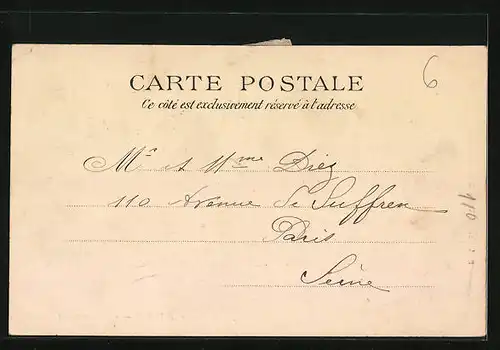 6
CARTE POSTALE
Ce côté est exclusivement réservé à l'adresse
Mr et Mme Diez
110 Avenue de Suffren
Paris
Seine